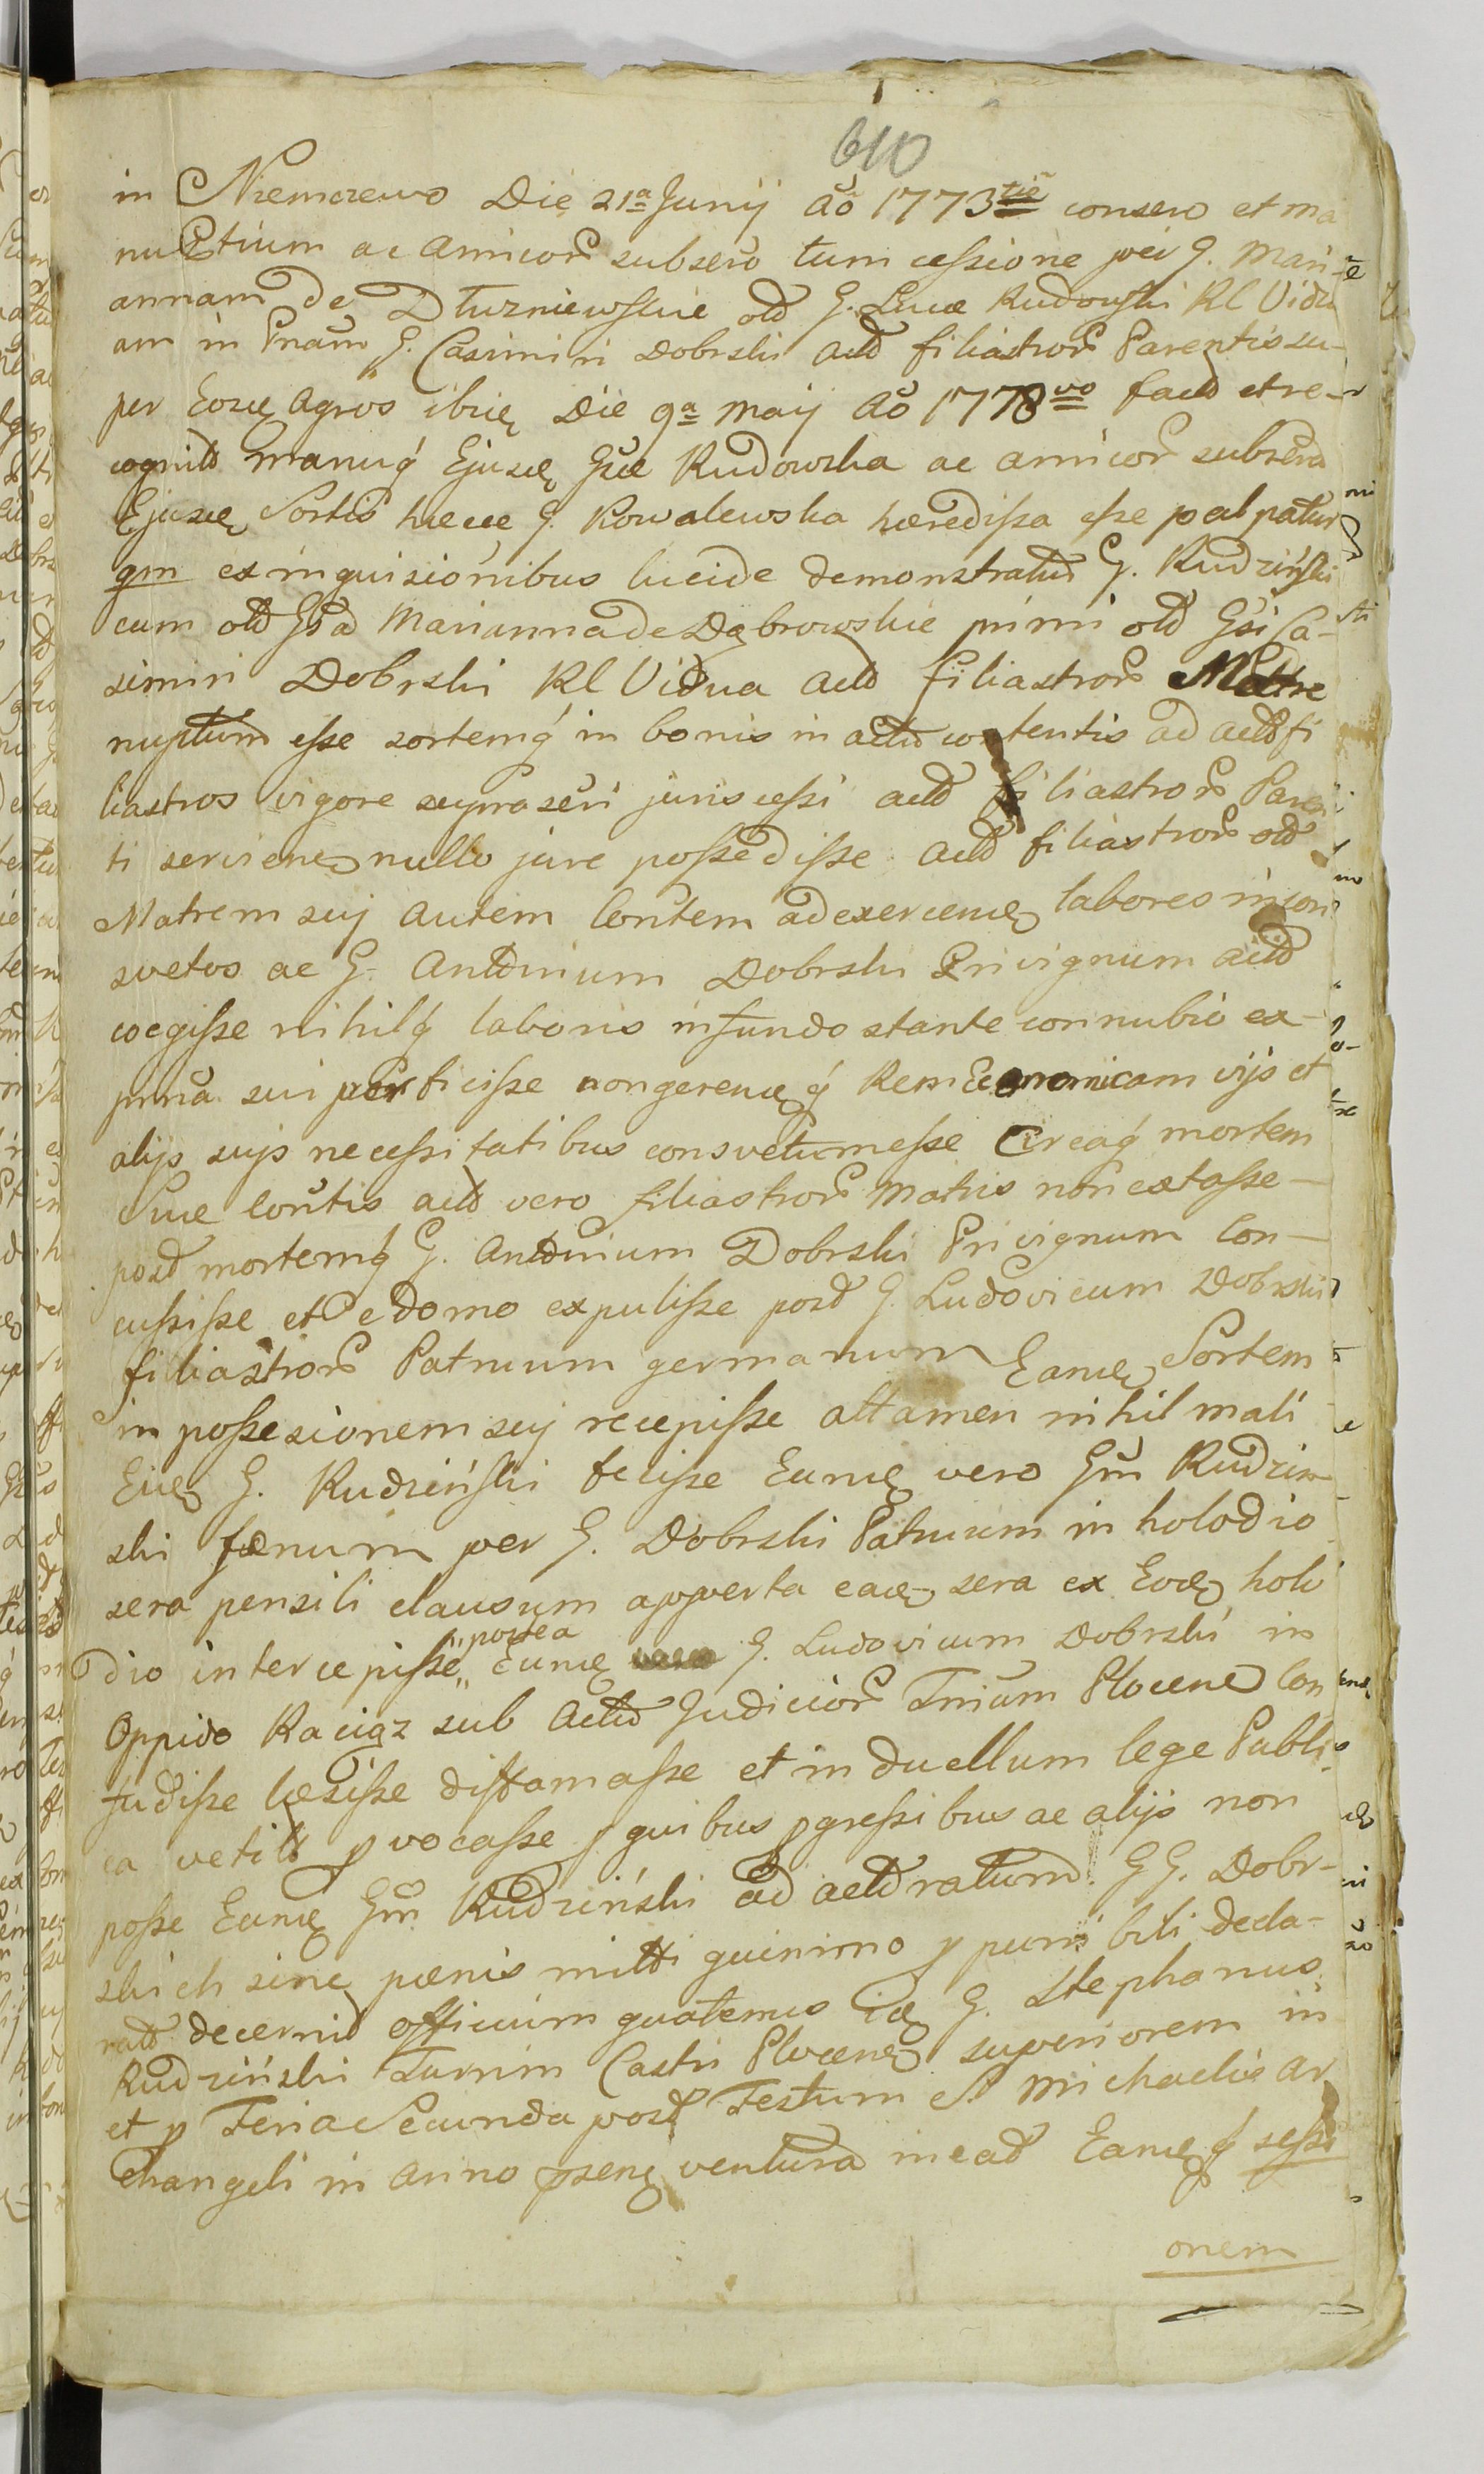 610
in Niemczewo Die 21a Junij Ao 1773tie consero et ma
nuptium ac Amicor subsero tum cessione per G. Mari-
annam de Dłuzniewskie old G. Lucæ Rudowski Rl Vidu
am in Pnam G. Casimiri Dobrski Actd filiastror Parentis su-
per Eosde Agros ibide Die 9a Maij Ao 1778vo fact et re-
cognit manuq Ejusde Gsæ Rudowska ac amicor subscra
Ejusde Sortis hæcce G. Kowalewska hæredissa esse palpatur
qm ex inquisionibus lucide demonstratur G. Rudziński
cum old Gsa Marianna de Dąbrowskie primi old Gsi Ca-
simiri Dobrski Rl Vidua Actd filiastror Matre
nuptum esse sortemq in bonis in actu contentis ad actd fi
liastros vigore suprascri juris cessi actd filiastror Paren
ti serviene nullo jure possedisse Actd filiastror old
Matrem suj autem Contem ad exercende labores incon
svetos ac G. Antonium Dobrski Privignum actd
coegisse nihilq laboris in fundo stante connubio ex
pnna sui perficisse non gerende q Rem Economicam vijs et
alijs sujs necessitatibus consvetum esse Circaq mortem
Suæ Contis actd vero filiastror Matris non extasse
post mortemq G. Antonium Dobrski Privignum Con-
cussisse et e domo expulisse post G. Ludovicum Dobrski
filiastror Patruum germanum Eande Sortem
in possesionem suj recepisse attamen nihil mali
Eide G. Rudziński fecisse Eunde vero Gm Rudzin
ski fænum per G. Dobrski Patruum in holodio
sera pensili clausum apperta eade sera ex Eode holo
dio intercepisse postea Eunde G. Ludovicum Dobrski in
Oppido Raciąz sub Actu Judicior Trium Plocene Con
fudisse læsisse diffamasse et in duellum lege Publi
ca vetit pvocasse p quibus pgressibus ac alijs non
posse Eunde Gm Rudziński ad actd ratum GG. Dobr-
skich sine pænis mitti quinimo p punibili decla-
ratd decernit officium quatenus ide G. Stephanus
Rudziński Turrim Castri Plocene superiorem in
et p Feria Secunda post Festum S. Michaelis Ar
changeli in Anno psene ventura ineat Eande q sessi
onem